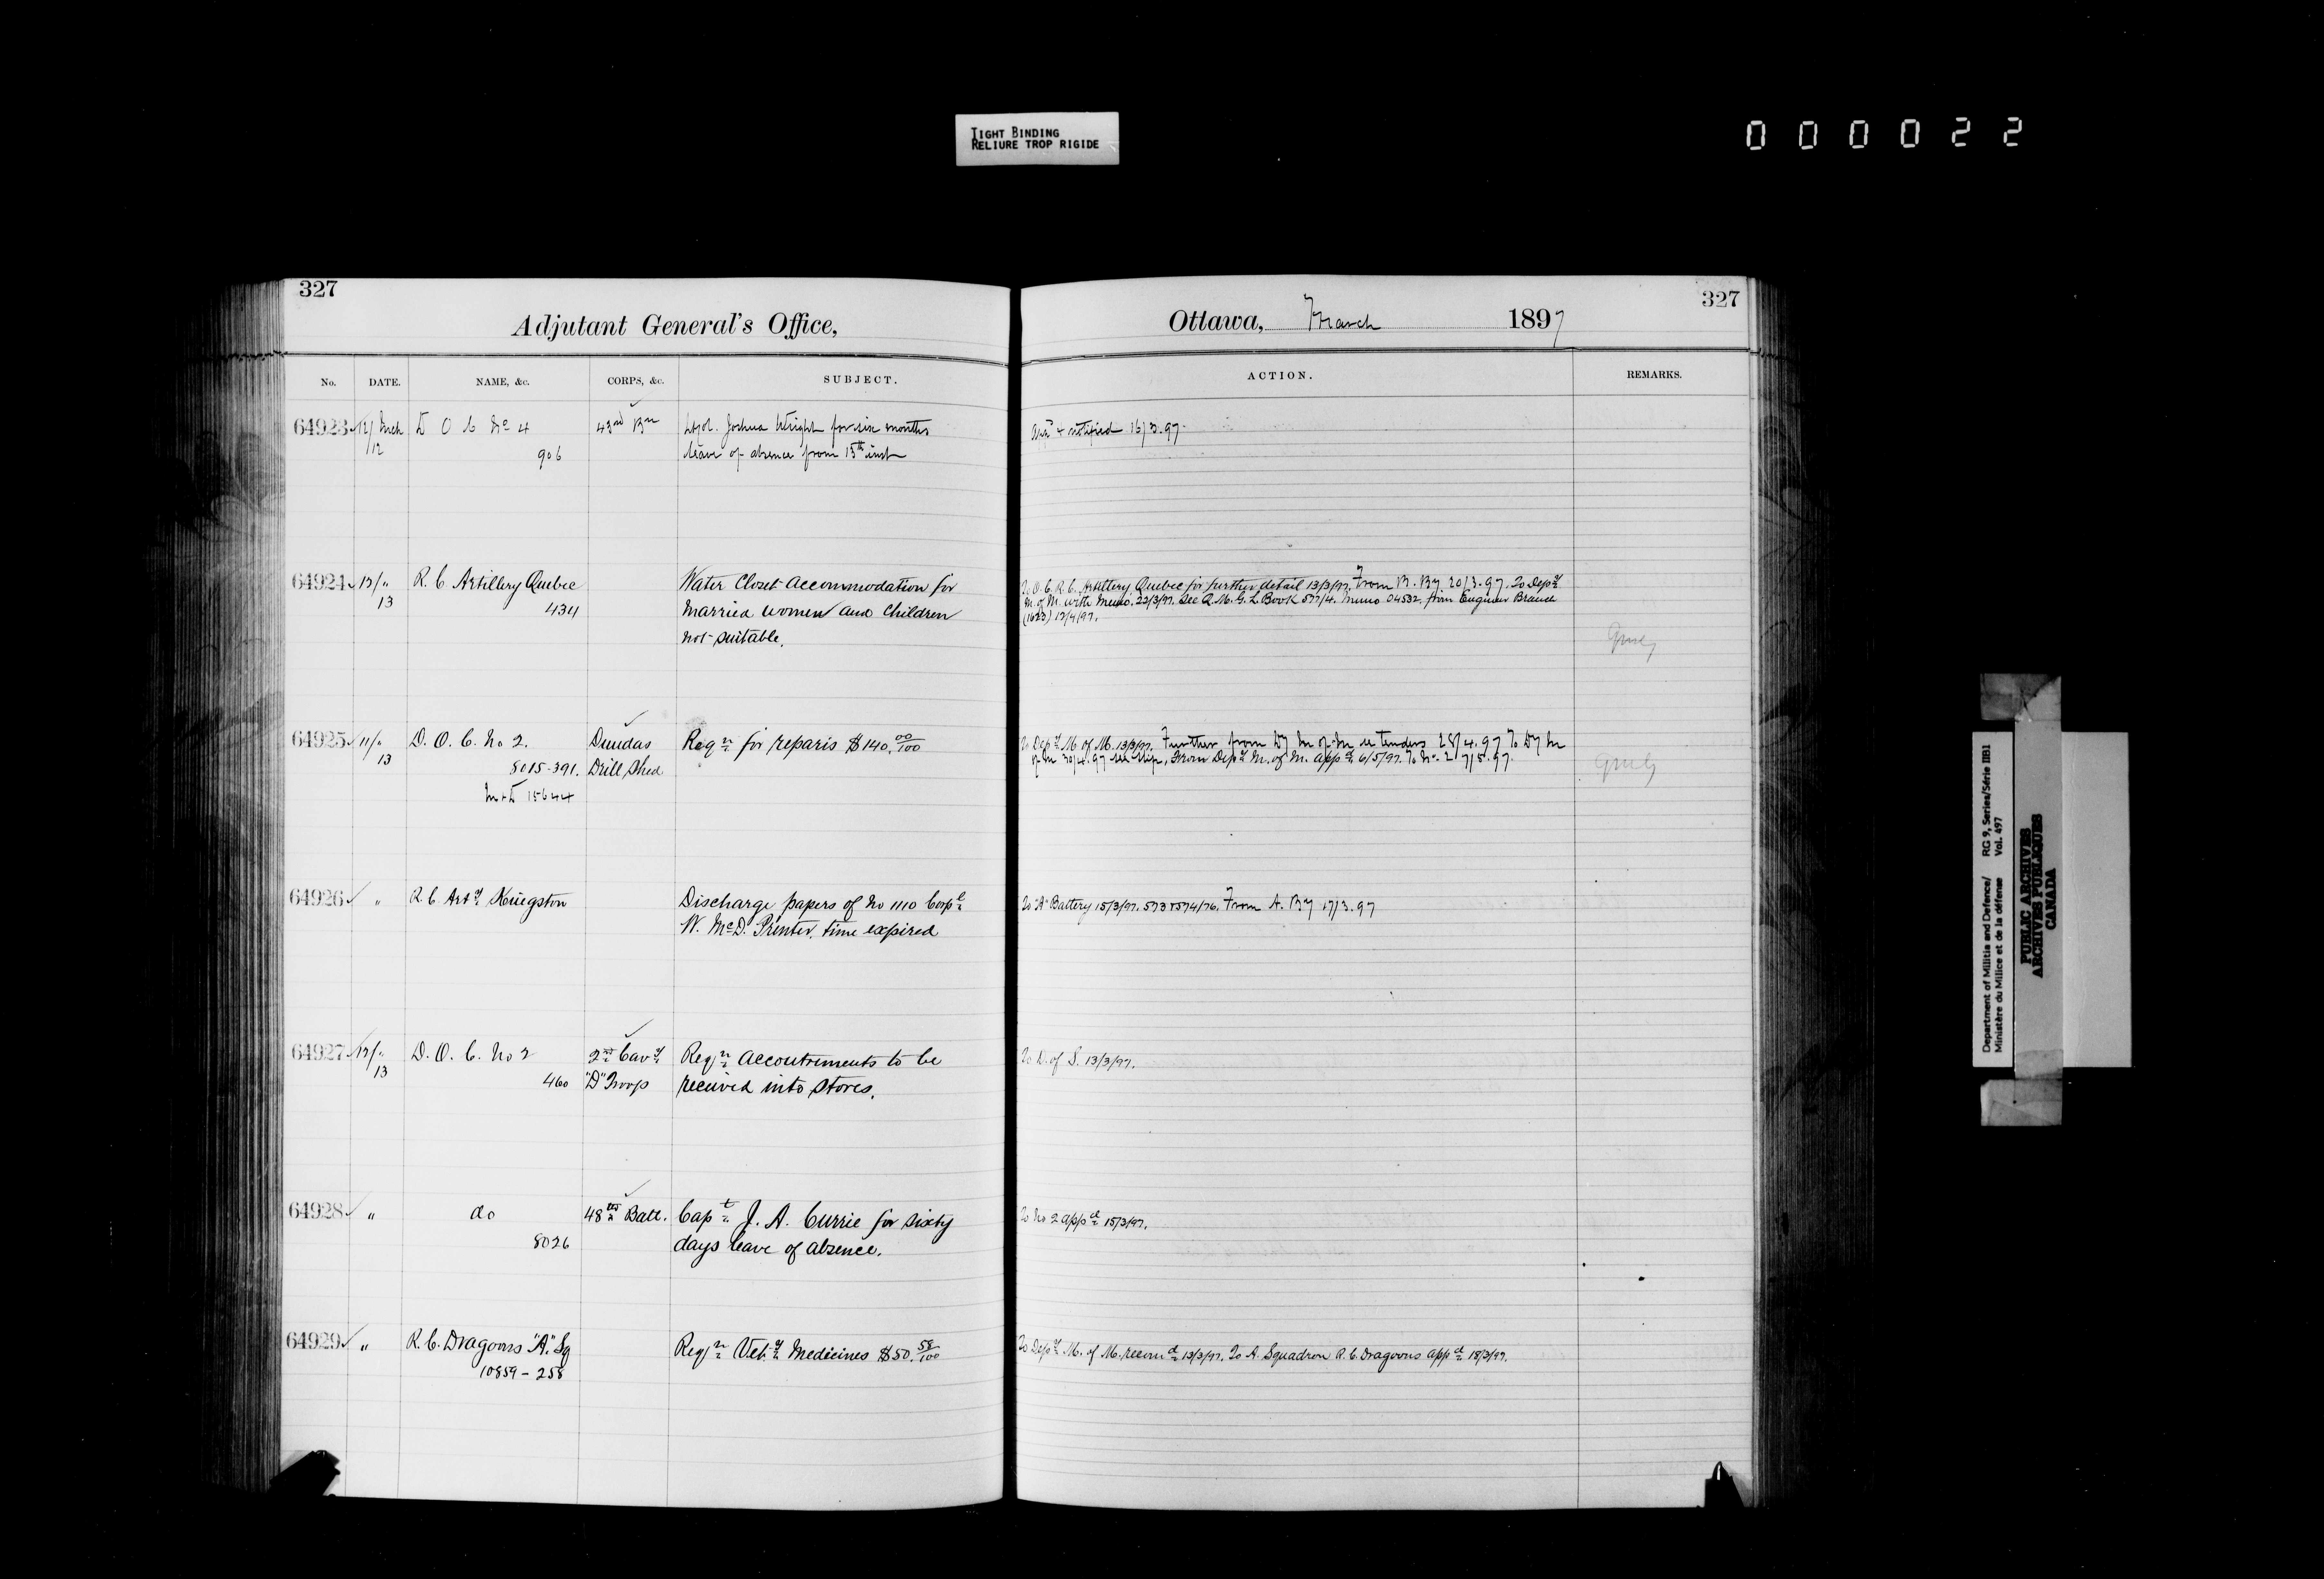 TIGHT BINDING
RELIURE TROP RIGIDE
000022
327
Adjutant General's Office,
No. DATE. NAME, &c. CORPS, &c. SUBJECT.
64923 12/ Mch D O C No 4 43rd Bn Joshua Wright for six months
/12 906 leave of absence from 15th inst
64924 12/ " R. C. Artillery Quebec Water Closet accommodation for
13 434 married women and children
not suitable.
64925 11/ " D. O. C. No 2. Dundas Reqn for reparis $140.00/100
13 8015-391. Drill Shed
M+D 15644
64926 " R. C. Arty Kingston Discharge papers of No 1110 Corpl
W. McD. Printer, time expired
64927 12/ " D. O. C. No 2 2nd Cavy Reqn accoutrements to be
13 460 "D" Troop received into stores.
64928 " do 48th Batt. Capt J. A. Currie for sixty
8026 days leave of absence.
64929 " R. C. Dragoons "A" Sq Reqn Vety Medicines $50.58/100
10859 - 258
327
Ottawa, March 1897
ACTION. REMARKS.
+ notified 16/3.97.
To O. C. R. C. Artillery, Quebec for further detail 13/3/97. From B. By 20/3.97. To Depy
M. of M. with Memo. 22/3/97. See Q. M. G. L. Book 577/4. Memo 04532. from Engineer Branch
(1623) 12/4/97.
To Depy M. of M. 13/3/97. Further from Dy M of M re tenders 28/4.97 To Dy M
of M 30/4.97 see slip, From Depy M. of M. appd 6/5/97. To No. 2 7/5.97.
To "A" Battery 15/3/97. 573+574/76. From A. By 17/3.97
To D. of S. 13/3/97.
To No 2 appd 15/3/97.
To Depy M. of M. recomd 13/3/97. To A. Squadron R. C. Dragoons appd 18/3/97.
Department of Militia and Defence/ RG 9, Series/Série IIB1
Ministère du Milice et de la défense Vol. 497
PUBLIC ARCHIVES
ARCHIVES PUBLIQUES
CANADA